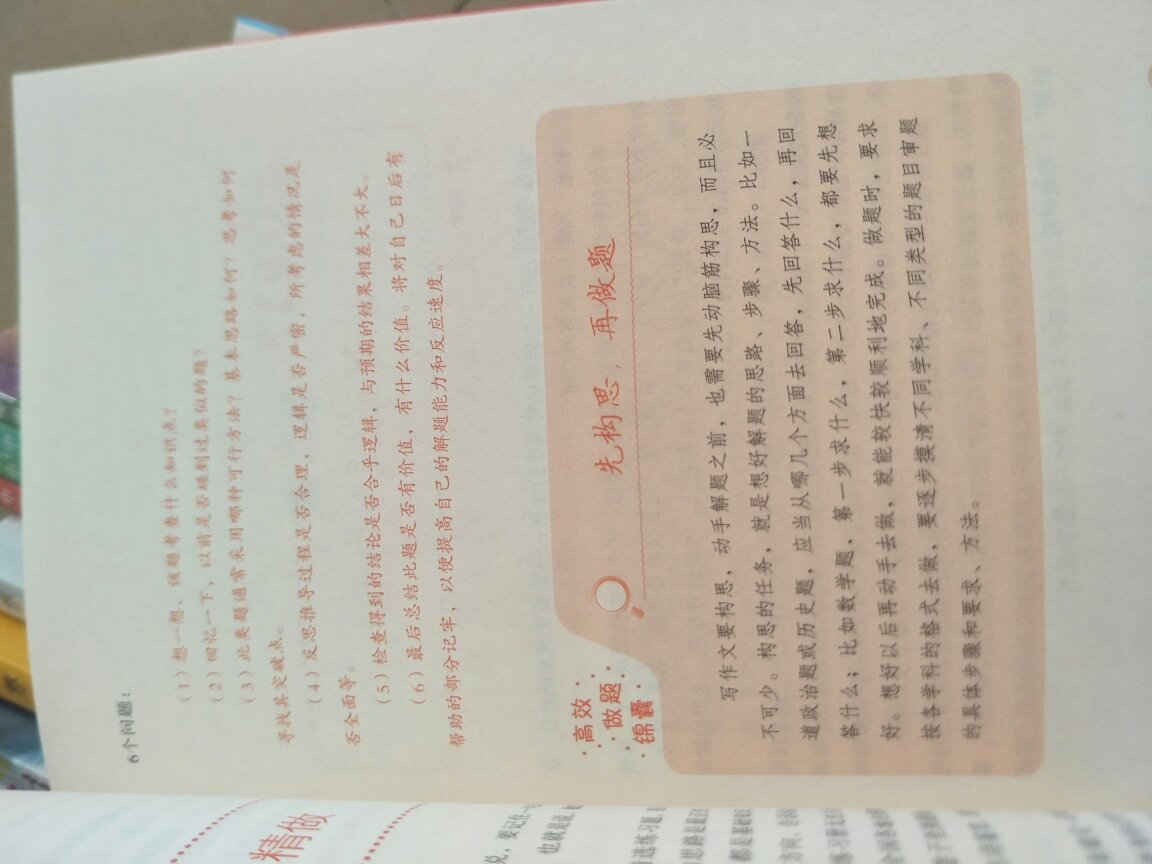 6个问题：
（1）想一想，该题考查什么知识点？
（2）回忆一下，以前是否碰到过类似的题？
（3）此类题通常采用哪种可行方法？基本思路如何？思考如何
寻找其突破点。
（4）反思推导过程是否合理，逻辑是否严密，所考虑的情况是
否全面等。
（5）检查得到的结论是否合乎逻辑，与预期的结果相差大不大。
（6）最后总结此题是否有价值，有什么价值。将对自己日后有
帮助的部分记牢，以便提高自己的解题能力和反应速度。
高效
做题
锦囊
先构思，再做题
写作文要构思，动手解题之前，也需要先动脑筋构思，而且必
不可少。构思的任务，就是想好解题的思路、步骤、方法。比如一
道政治题或历史题，应当从哪几个方面去回答，先回答什么，再回
答什么；比如数学题，第一步求什么，第二步求什么，都要先想
好。想好以后再动手去做，就能较快较顺利地完成。做题时，要求
按各学科的格式去做，要逐步摸清不同学科、不同类型的题目审题
的具体步骤和要求、方法。
精做
说，要记住
也就是说，
选练习题，
思路是最
都是基础
方向，